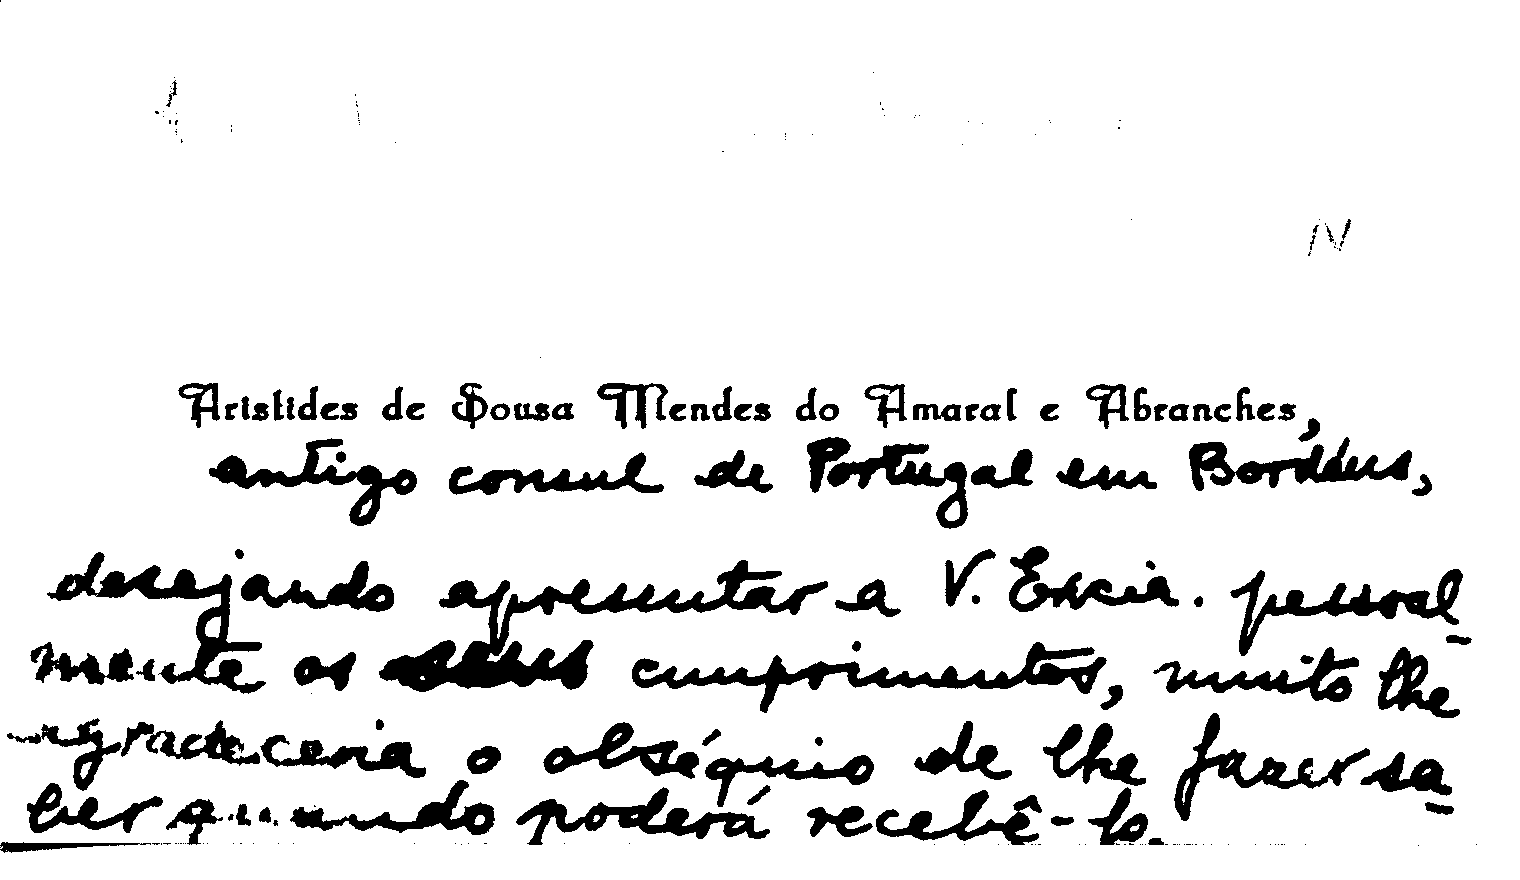 N
Aristides de Sousa Mendes do Amaral e Abranches,
antigo consul de Portugal em Bordéus,
desejando apresentar a V. Excia. pessoal-
mente os seus cumprimentos, muito lhe
agradeceria o obséquio de lhe fazer sa-
ber quando poderá recebê-lo.